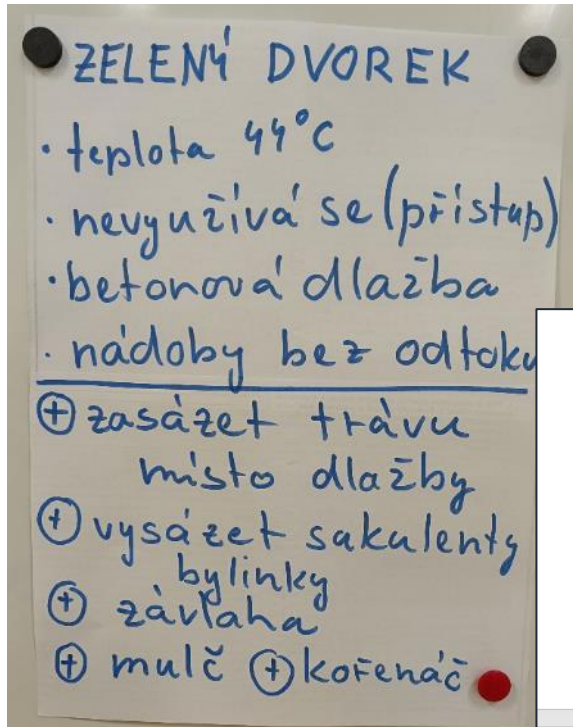 ZELENÝ DVOREK
· teplota 44°C
· nevyužívá se (přístup)
· betonová dlažba
· nádoby bez odtoku
⊕ zasázet trávu
místo dlažby
⊕ vysázet sukulenty
bylinky
⊕ závlaha
⊕ mulč ⊕ kořenáč